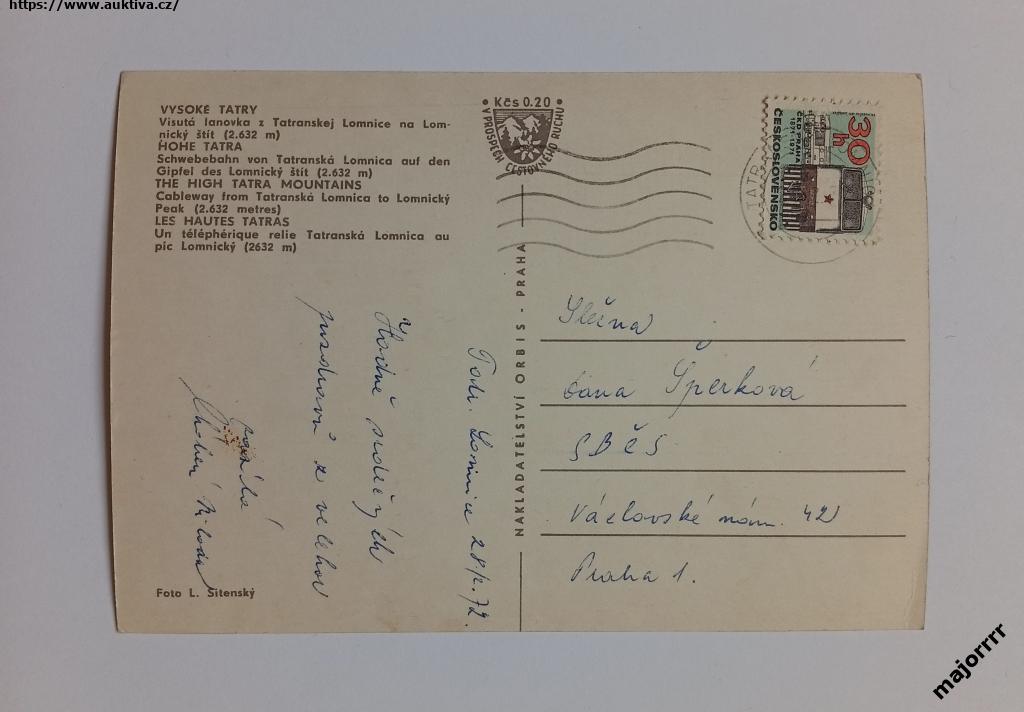 https://www.auktiva.cz/
VYSOKÉ TATRY
Visutá lanovka z Tatranskej Lomnice na Lom-
nický štít (2.632 m)
HOHE TATRA
Schwebebahn von Tatranská Lomnica auf den
Gipfel des Lomnický štít (2.632 m)
THE HIGH TATRA MOUNTAINS
Cableway from Tatranská Lomnica to Lomnický
Peak (2.632 metres)
LES HAUTES TATRAS
Un téléphérique relie Tatranská Lomnica au
pic Lomnický (2632 m)
Kčs 0.20
V PROSPĚCH CESTOVNÉHO RUCHU
30 h
ČKD PRAHA
1871-1971
ČESKOSLOVENSKO
TATR
NAKLADATELSTVÍ ORBIS - PRAHA
Tatr. Lomnica 28/2. 72.
Hodně srdečných
pozdravů z
posílá
Slečna
Jana Šperková
SBČS
Václavské nám. 42
Praha 1.
Foto L. Sitenský
majorrrr